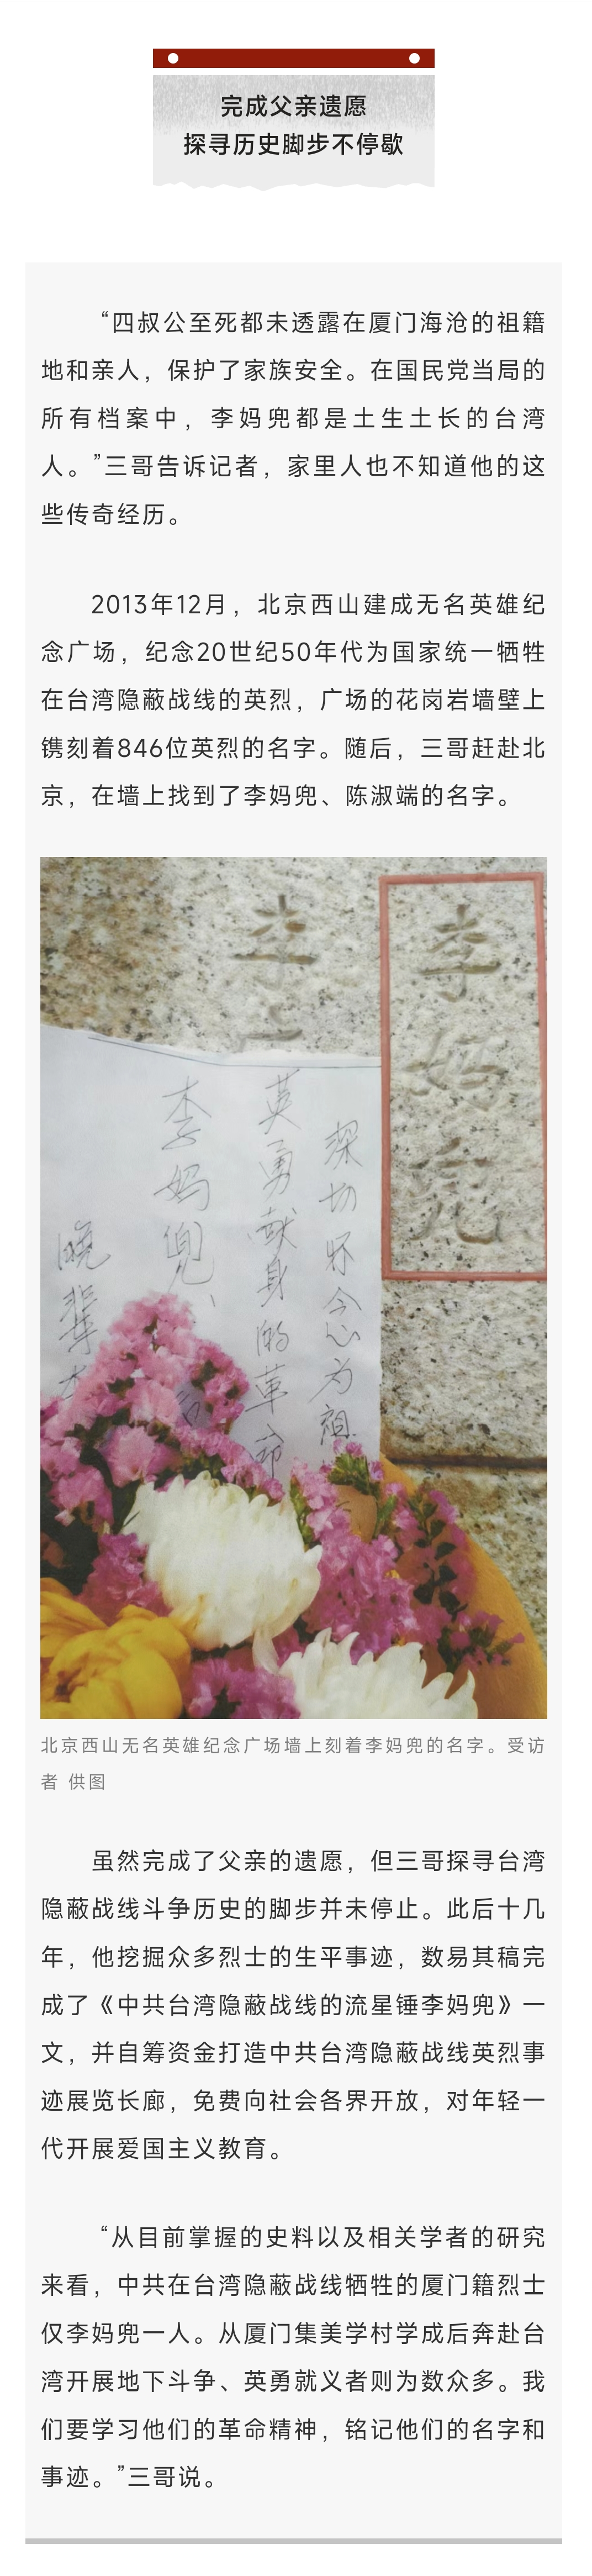 完成父亲遗愿
探寻历史脚步不停歇
“四叔公至死都未透露在厦门海沧的祖籍
地和亲人，保护了家族安全。在国民党当局的
所有档案中，李妈兜都是土生土长的台湾
人。”三哥告诉记者，家里人也不知道他的这
些传奇经历。
2013年12月，北京西山建成无名英雄纪
念广场，纪念20世纪50年代为国家统一牺牲
在台湾隐蔽战线的英烈，广场的花岗岩墙壁上
镌刻着846位英烈的名字。随后，三哥赶赴北
京，在墙上找到了李妈兜、陈淑端的名字。
李妈兜
李
深切怀念为祖
英勇献身的革命
李妈兜、
晚辈
北京西山无名英雄纪念广场墙上刻着李妈兜的名字。受访
者 供图
虽然完成了父亲的遗愿，但三哥探寻台湾
隐蔽战线斗争历史的脚步并未停止。此后十几
年，他挖掘众多烈士的生平事迹，数易其稿完
成了《中共台湾隐蔽战线的流星锤李妈兜》一
文，并自筹资金打造中共台湾隐蔽战线英烈事
迹展览长廊，免费向社会各界开放，对年轻一
代开展爱国主义教育。
“从目前掌握的史料以及相关学者的研究
来看，中共在台湾隐蔽战线牺牲的厦门籍烈士
仅李妈兜一人。从厦门集美学村学成后奔赴台
湾开展地下斗争、英勇就义者则为数众多。我
们要学习他们的革命精神，铭记他们的名字和
事迹。”三哥说。